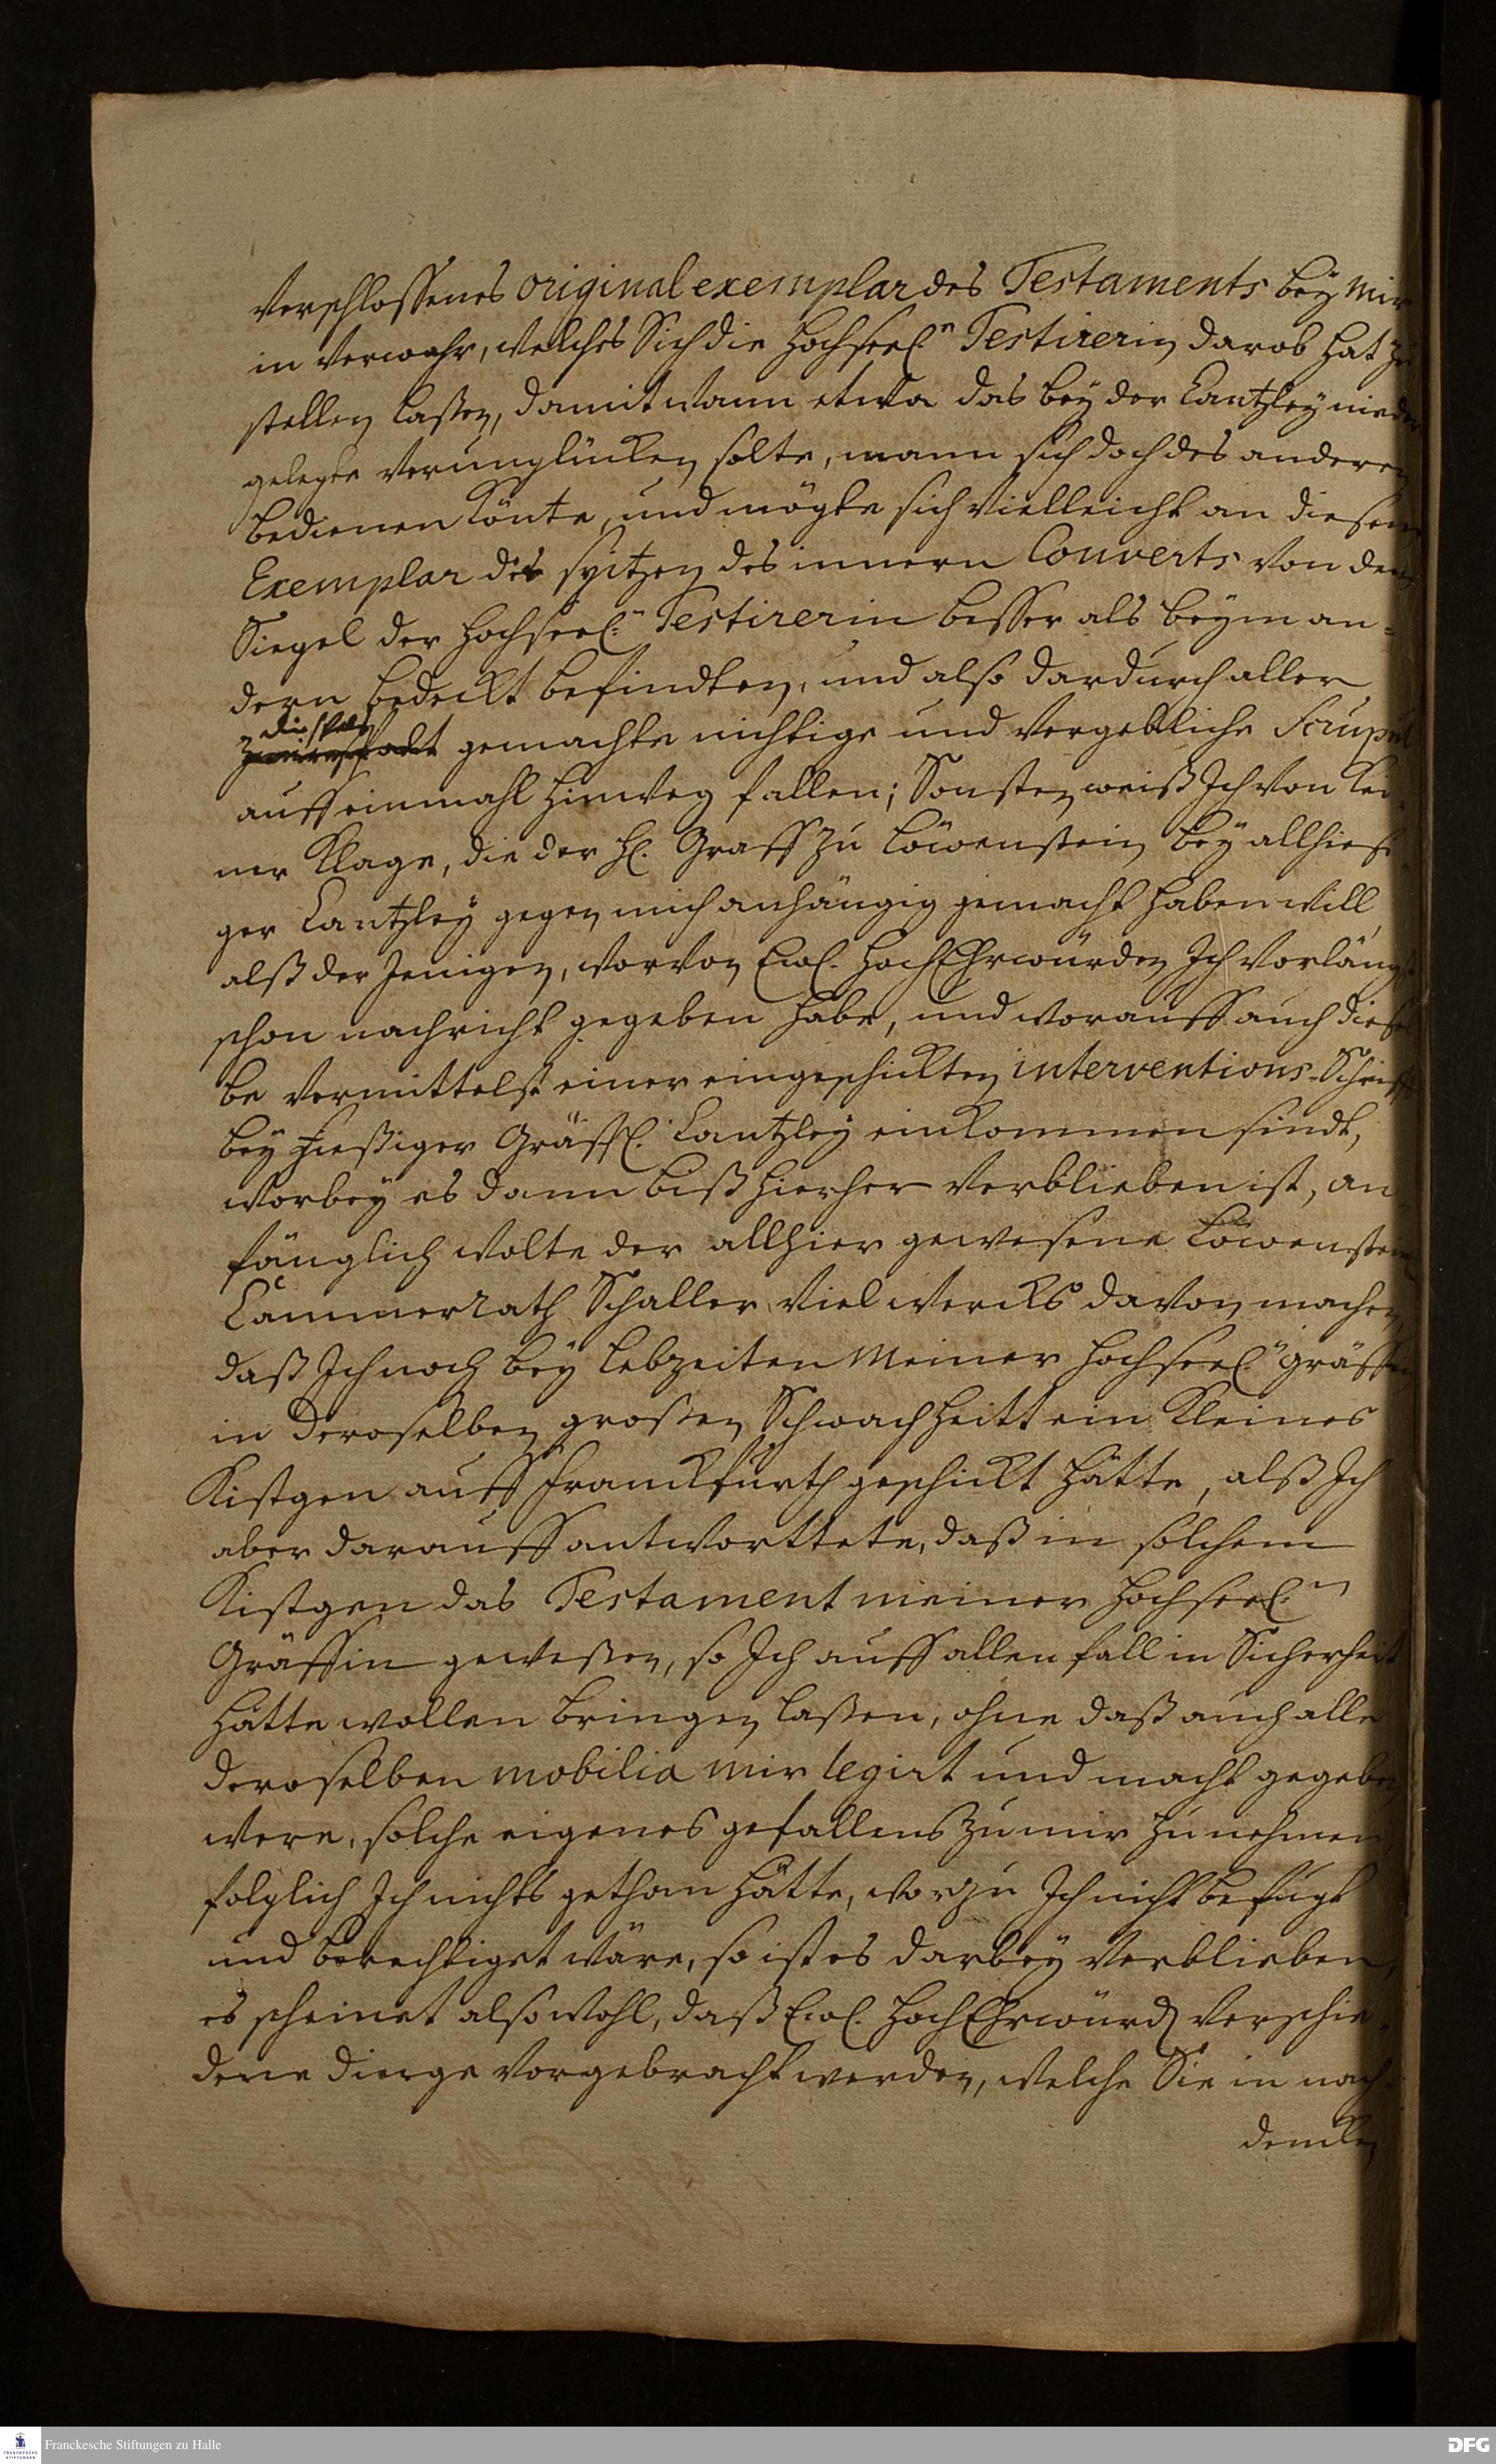 verschloßenes original exemplar des Testaments bey Mir
in verwahr, welches Sich die hochseel.n Testirerin darob hat zu
stellen laßen, damit wann etwa das bey der Cantzley nieder
gelegte verunglücken solte, mann sich doch des anderen
bedienen könte, und mögte sich vielleicht an diesem
Exemplar die spitzen des innern Couverts von dem
Siegel der hochseel.n Testirerin besser als beym an=
dern bedeckt befindten, und also dardurch aller
dießfals
gemachte nichtige und vergebliche Scrupul
auff einmahl hinweg fallen; Sonsten weiß Ich von kei=
ner Klage, die der H. Graff zu Löwenstein bey allhiesi=
ger Cantzley gegen mich anhängig gemacht haben will,
alß der Jenigen, worvon Ewl. HochEhrwürden Ich vorlängst
schon nachricht gegeben habe, und worauff auch diesel
be vermittelst einer eingeschickten interventions-Schrifft
bey hießiger Gräffl. Cantzley einkommen sindt,
worbey es dann biß hierher verblieben ist, an
fänglich wolte der allhier gewesene Löwenstein.
Cammerrath Schaller viel wercks davon machen,
daß Ich noch bey lebzeiten Meiner hochseel.n gräffin
in deroselben großen Schwachheitt ein kleines
Kistgen auff Franckfurth geschickt hätte, alß Ich
aber darauff antworttete, daß in solchem
Kistgen das Testament meiner hochseel.n
Gräffin geweßen, so Ich auff allen fall in Sicherheit
hätte wollen bringen laßen, ohne daß auch alle
deroselben mobilia mir legirt und macht gegeben
were, solche eigenes gefallens zu mir zu nehmen
folglich Ich nichts gethan hätte, worzu Ich nicht befugt
und berechtiget wäre, so ist es darbey verblieben,
es scheinet also wohl, daß Ewl. HochEhrwürd. verschie=
dene dinge vorgebracht werden, welche Sie in nach=
dencken
Franckesche Stiftungen zu Halle
FRANCKESCHE STIFTUNGEN
DFG